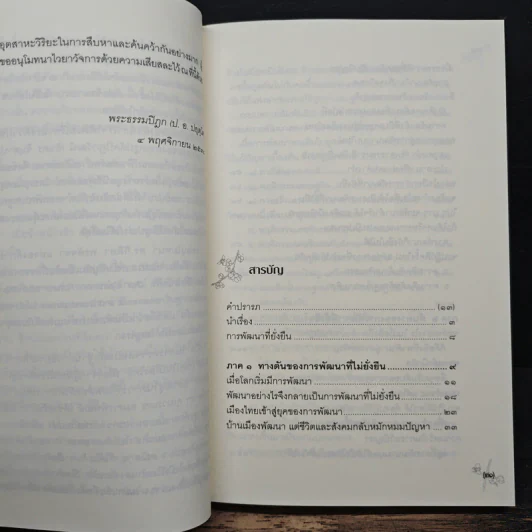 อุตสาหะวิริยะในการสืบหาและค้นคว้ากันอย่างมาก
ขออนุโมทนาไวยาวัจการด้วยความเสียสละไว้ ณ ที่นี้ด้วย
พระธรรมปิฎก (ป. อ. ปยุตฺโต
๔ พฤศจิกายน
สารบัญ
คำปรารภ ............ (๑๓)
นำเรื่อง ............ ๓
การพัฒนาที่ยั่งยืน ............ ๘
ภาค ๑ ทางตันของการพัฒนาที่ไม่ยั่งยืน ............ ๙
เมื่อโลกเริ่มมีการพัฒนา ............ ๑๑
พัฒนาอย่างไรจึงกลายเป็นการพัฒนาที่ไม่ยั่งยืน ............ ๑๘
เมืองไทยเข้าสู่ยุคของการพัฒนา ............ ๒๓
บ้านเมืองพัฒนา แต่ชีวิตและสังคมกลับหมักหมมปัญหา ...... ๓๓